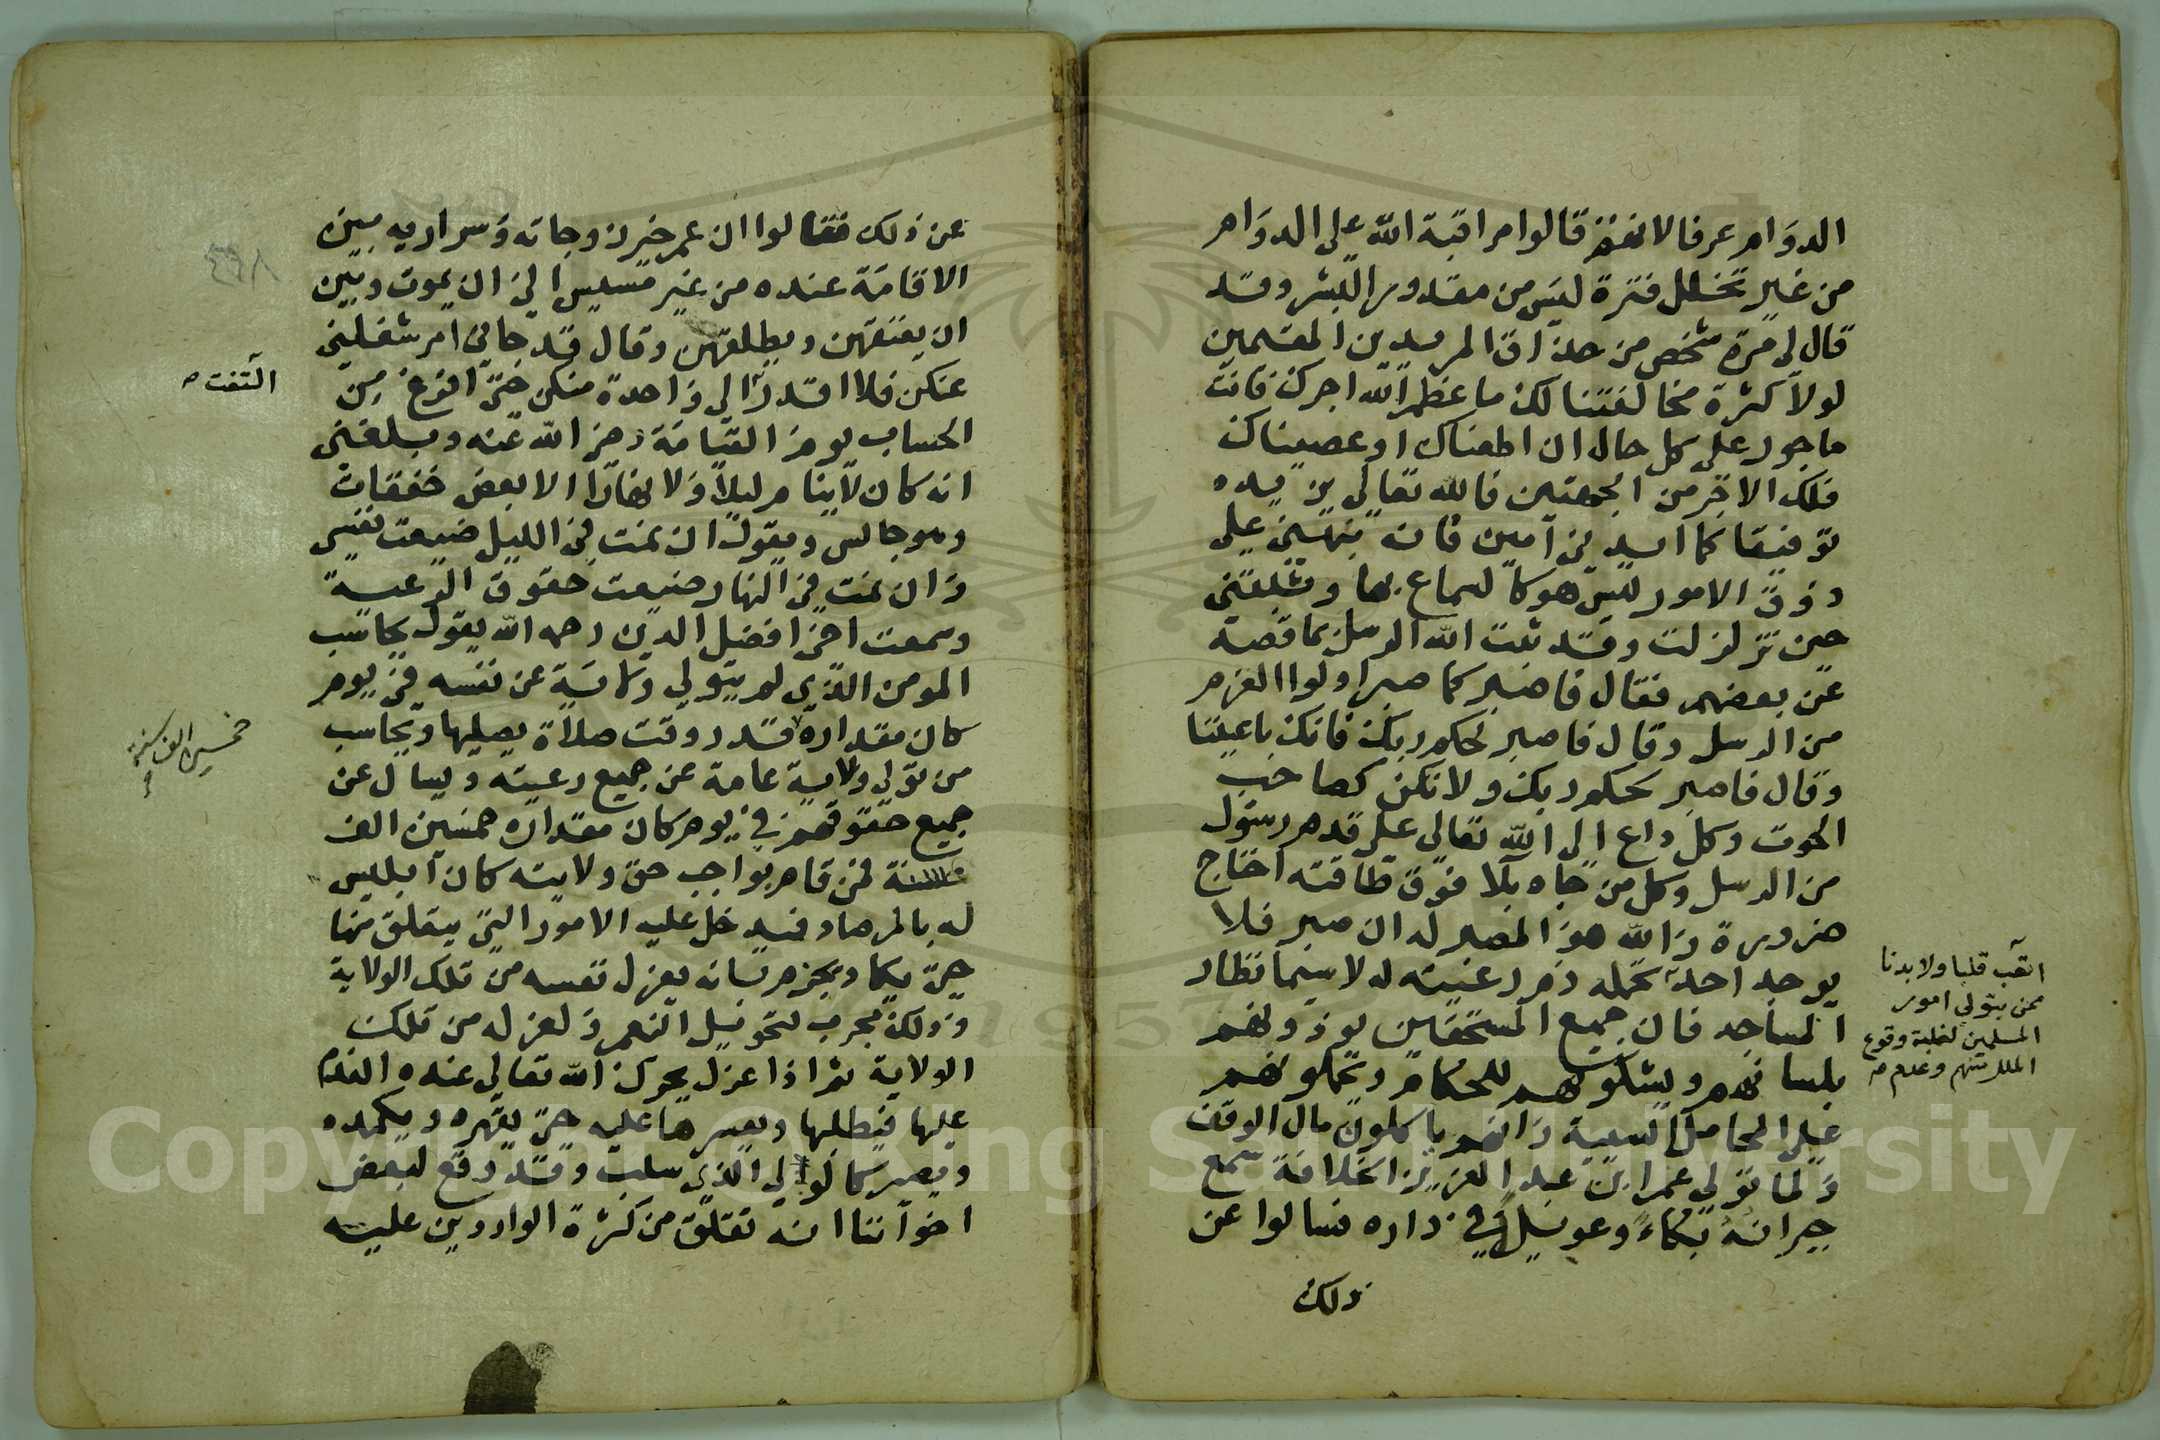 الدوام عرفا لانهم قالوا مراقبة الله على الدوام
من غير تخلل فترة ليس من مقدور البشر وقد
قال لي مرة شخص من حذاق المريدين المقيمين
لولا كثرة مخالفتنا لك ما عظم الله اجرك فانت
ماجور على كل حال ان اطعناك او عصيناك
فلك الاجر من الجهتين فالله تعالى يزيده
توفيقا كما ايدني آمين فانه نبهني على
ذوق الامور ليس هو كالسماع بها وثبتني
حين تزلزلت وقد ثبت الله الرسل بما قصه
عن بعضهم فقال فاصبر كما صبر اولوا العزم
من الرسل وقال فاصبر لحكم ربك فانك باعيننا
وقال فاصبر لحكم ربك ولا تكن كصاحب
الحوت وكل داع الى الله تعالى على قدم رسول
من الرسل وكل من جاه بلا فوق طاقته احتاج
ضرورة والله هو المصبر له ان صبر فلا
يوجد احد تحمله ذم رعيته له لاسيما نظار
المساجد فان جميع المستحقين يوذونهم
بلسانهم ويشكونهم للحكام ويحملونهم
على المحامل السيية وانهم ياكلون مال الوقف
ولما تولى عمر ابن عبد العزيز الخلافة سمع
جيرانه بكاء وعويل في داره فسالوا عن
ذلك
اتعب قلبا ولا بدنا
ممن يتولي امور
المسلمين لغلبة وقوع
الملل منهم وعدم
عن ذلك فقالوا ان عمر خير زوجاته وسراريه بين
الاقامة عنده من غير مسيس الى ان يموت وبين
ان يعتقهن ويطلقهن وقال قد جاني امر شغلني
عنكن فلا اقدر الي واحدة منكن حتى افرغ من
الحساب يوم القيامة رضي الله عنه وبلغني
انه كان لا ينام ليلا ولا نهارا الا بعض خفقات
وهو جالس ويقول ان نمت في الليل ضيعت نفسي
وان نمت في النهار ضيعت حقوق الرعية
وسمعت اخي افضل الدين رحمه الله يقول يحاسب
المومن الذي لم يتولي ولاية عن نفسه في يوم
كان مقداره قدر وقت صلاة يصليها ويحاسب
من تولي ولاية عامة عن جميع رعيته ويسال عن
جميع حقوقهم في يوم كان مقداره خمسين الف
سنة فمن قام بواجب حق ولايته كان ابليس
له بالمرصاد فيدخل عليه الامور التي يتقلق منها
حتى يكاد يجزم بانه يعزل نفسه من تلك الولاية
وذلك مجرب لتحويل النعم ولعزله من تلك
الولاية ثم اذا عزل يحرك الله تعالي عنده الندم
عليها فيطلبها ويعسرها عليه حتى يقهره ويكمده
ويصير كالولي الذي سلب وقد وقع لبعض
اخواننا انه تقلق من كثرة الواردين عليه
التفت
خمسين الف سنة